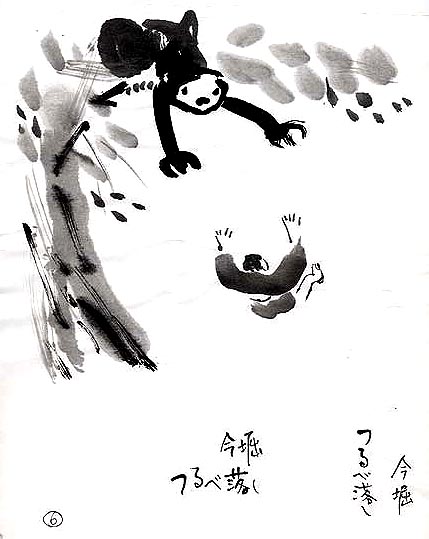 今堀
つるべ落し
今堀
つるべ落し
6